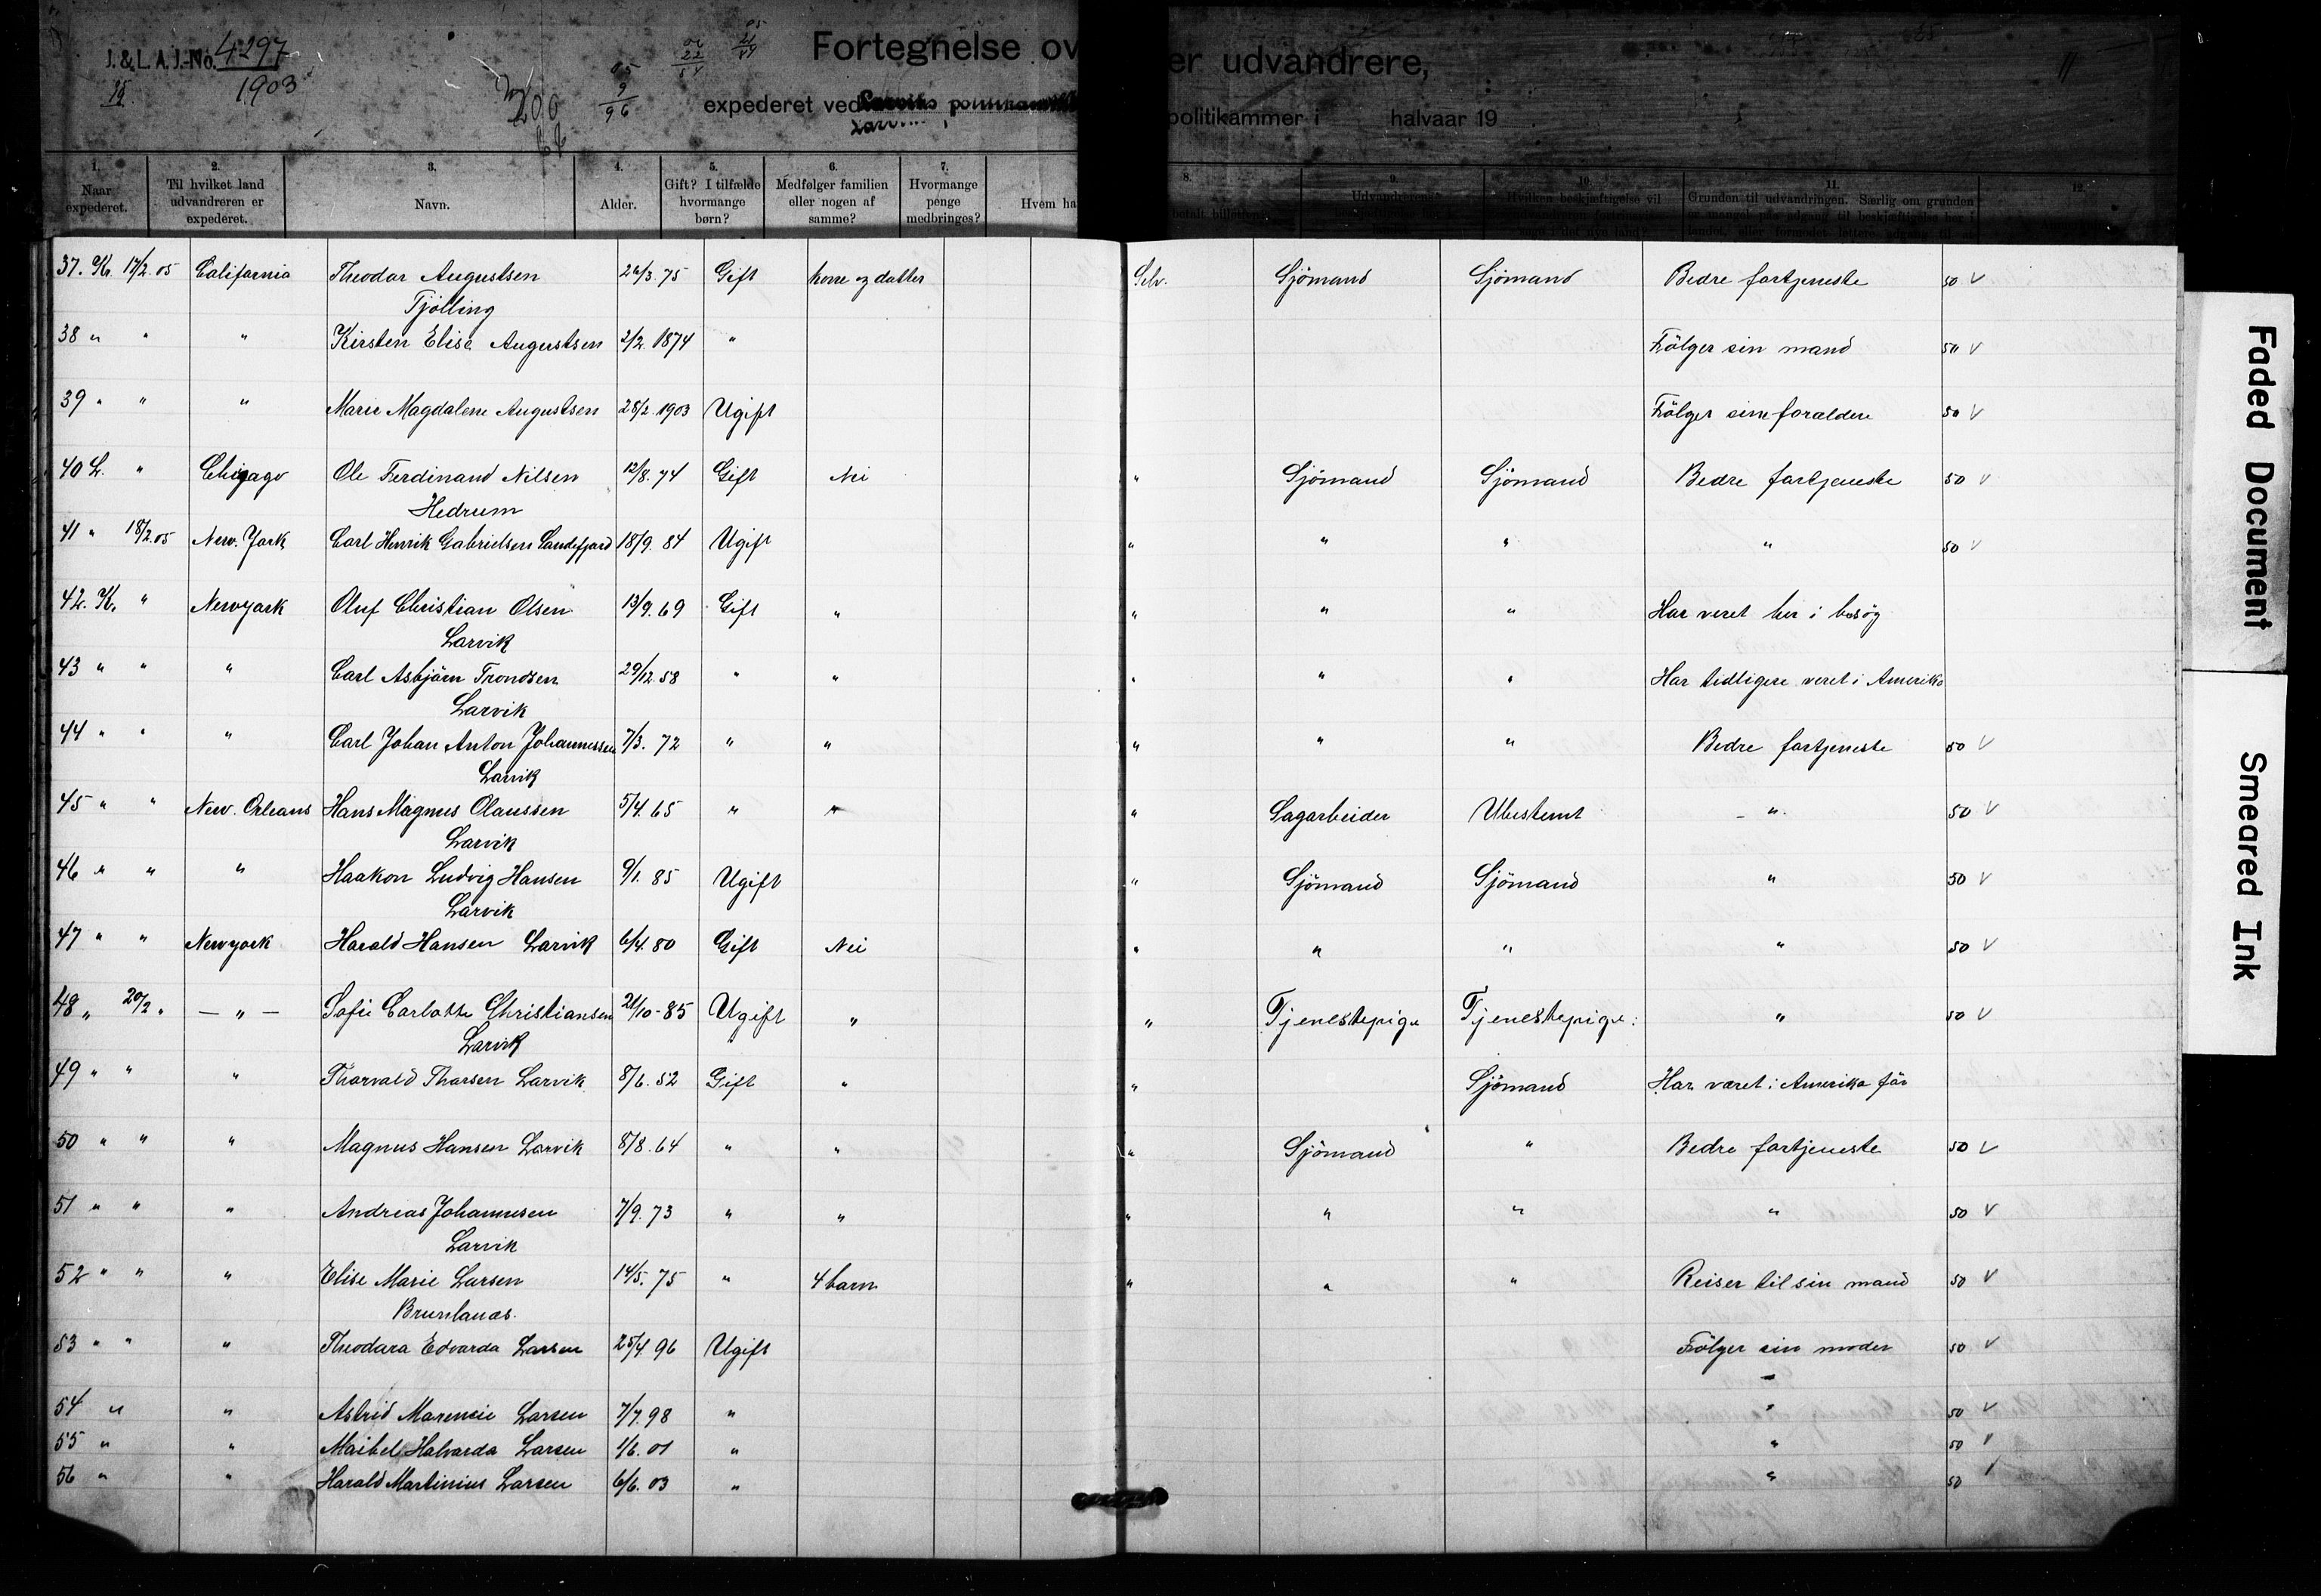 J. & L. A. J.-No. 4297
19 1903
05
9
96
22
Fortegnelse over udvandrere,
expederet ved Larviks politikammer i halvaar 19
1. Naar expederet.
2. Til hvilket land udvandreren er expederet.
3. Navn.
4. Alder.
5. Gift? I tilfælde hvormange børn?
6. Medfølger familien eller nogen af samme?
7. Hvormange penge medbringes?
Hvem ha
8. betalt billetten?
9. Udvandrerens
10. Hvilken beskjæftigelse vil
11. Grunden til udvandringen. Særlig om grunden
12.
37. Kr. 17/2.05 California Theodor Augustsen 26/3.75 Gift kone og datter Selv. Sjömand Sjömand Bedre fortjeneste 50 V
Tjölling
38 " " " Kirsten Elise Augustsen 2/2.1874 " Fölger sin mand 50 V
39 " " " Marie Magdalene Augustsen 28/2.1903 Ugift Fölger sine foraldere 50 V
40 L. " Chicago Ole Ferdinand Nilsen 12/8.74 Gift Nei " Sjömand Sjömand Bedre fortjeneste 50 V
Hedrum
41 " 18/2.05 New. York Carl Henrik Gabrielsen Sandefjord 18/9.84 Ugift " " " " 50 V
42. K. " Newyork Oluf Christian Olsen 13/9.69 Gift " " " " Har veret her i besög
Larvik
43 " " " Carl Asbjörn Trondsen 29/12.58 " " " " " Har tidligere veret i Amerika
Larvik
44 " " " Carl Johan Anton Johannessen 7/3.72 " " " " " Bedre fortjeneste 50 V
Larvik
45 " " New. Orleans Hans Magnus Olaussen 5/4.65 " " " Sagarbeider Ubestemt - " - 50 V
Larvik
46 " " " Haakon Ludvig Hansen 9/1.85 Ugift " Sjömand Sjömand " 50 V
Larvik
47 " " Newyork Harald Hansen Larvik 6/4.80 Gift Nei " " " " 50 V
48 " 20/2 " — " — Sofie Carlotte Christiansen 21/10-85 Ugift " " Tjenestepige Tjenestepige: " 50 V
Larvik
49 " " " Thorvald Thorsen Larvik 8/6.52 Gift " " Sjömand Har været i Amerika för
50 " " " Magnus Hansen Larvik 8/8.64 " " " Sjömand " Bedre fortjeneste 50 V
51 " " " Andreas Johannesen 7/9.73 " " " " " " 50 V
Larvik
52 " " " Elise Marie Larsen 14/5.75 " 4 barn " " " Reiser til sin mand 50 V
Brunlanes.
53 " " " Theodora Edvarda Larsen 25/4.96 Ugift Fölger sin moder 50 V
54 " " Astrid Marensie Larsen 7/7.98 " " 50 V
55 " " Maibel Halvarda Larsen 1/6.01 " " 50 V
56 " " Harald Martinius Larsen 6/6.03 " " 50 V
Faded Document
Smeared Ink